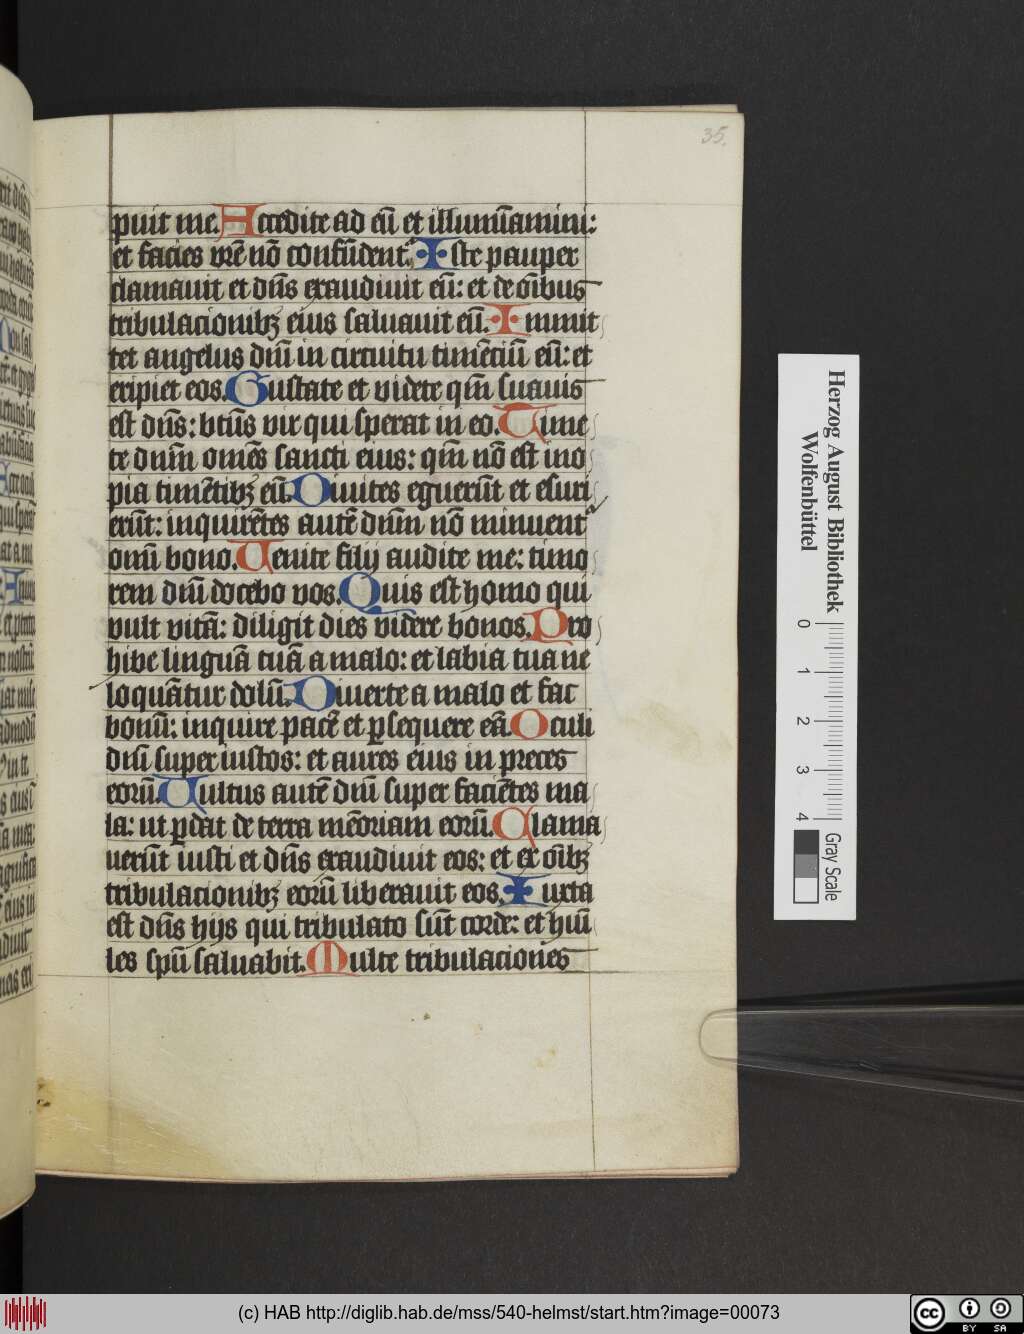 35.
puit me. Accedite ad eū et illumināmini:
et facies vrē nō confūdent᷑. Iste pauper
clamauit et dn̄s exaudiuit eū: et de oībus
tribulacionibꝫ eius saluauit eū. Inmit
tet angelus dn̄i in circuitu timēciū eū: et
eripiet eos. Gustate et videte qm̄ suauis
est dn̄s: btūs vir qui sperat in eo. Time
te dnm̄ omēs sancti eius: qm̄ nō est ino
pia timētibꝫ eū. Diuites eguerūt et esuri
erūt: inquirētes autē dnm̄ nō minuent᷑
omī bono. Venite filij audite me: timo
rem dn̄i docebo vos. Quis est homo qui
vult vitā: diligit dies videre bonos. Pro
hibe linguā tuā a malo: et labia tua ne
loquātur dolū. Diuerte a malo et fac
bonū: inquire pacē et ꝑsequere eā. Oculi
dn̄i super iustos: et aures eius in preces
eorū. Vultus autē dn̄i super faciētes ma
la: ut ꝑdat de terra mēoriam eorū. Clama
uerūt iusti et dn̄s exaudiuit eos: et ex oībꝫ
tribulacionibꝫ eorū liberauit eos. Iuxta
est dn̄s hijs qui tribulato sūt corde: et hūi
les spū saluabit. Multe tribulaciones
Herzog August Bibliothek
Wolfenbüttel
0 1 2 3 4
Gray Scale
(c) HAB http://diglib.hab.de/mss/540-helmst/start.htm?image=00073
cc BY SA